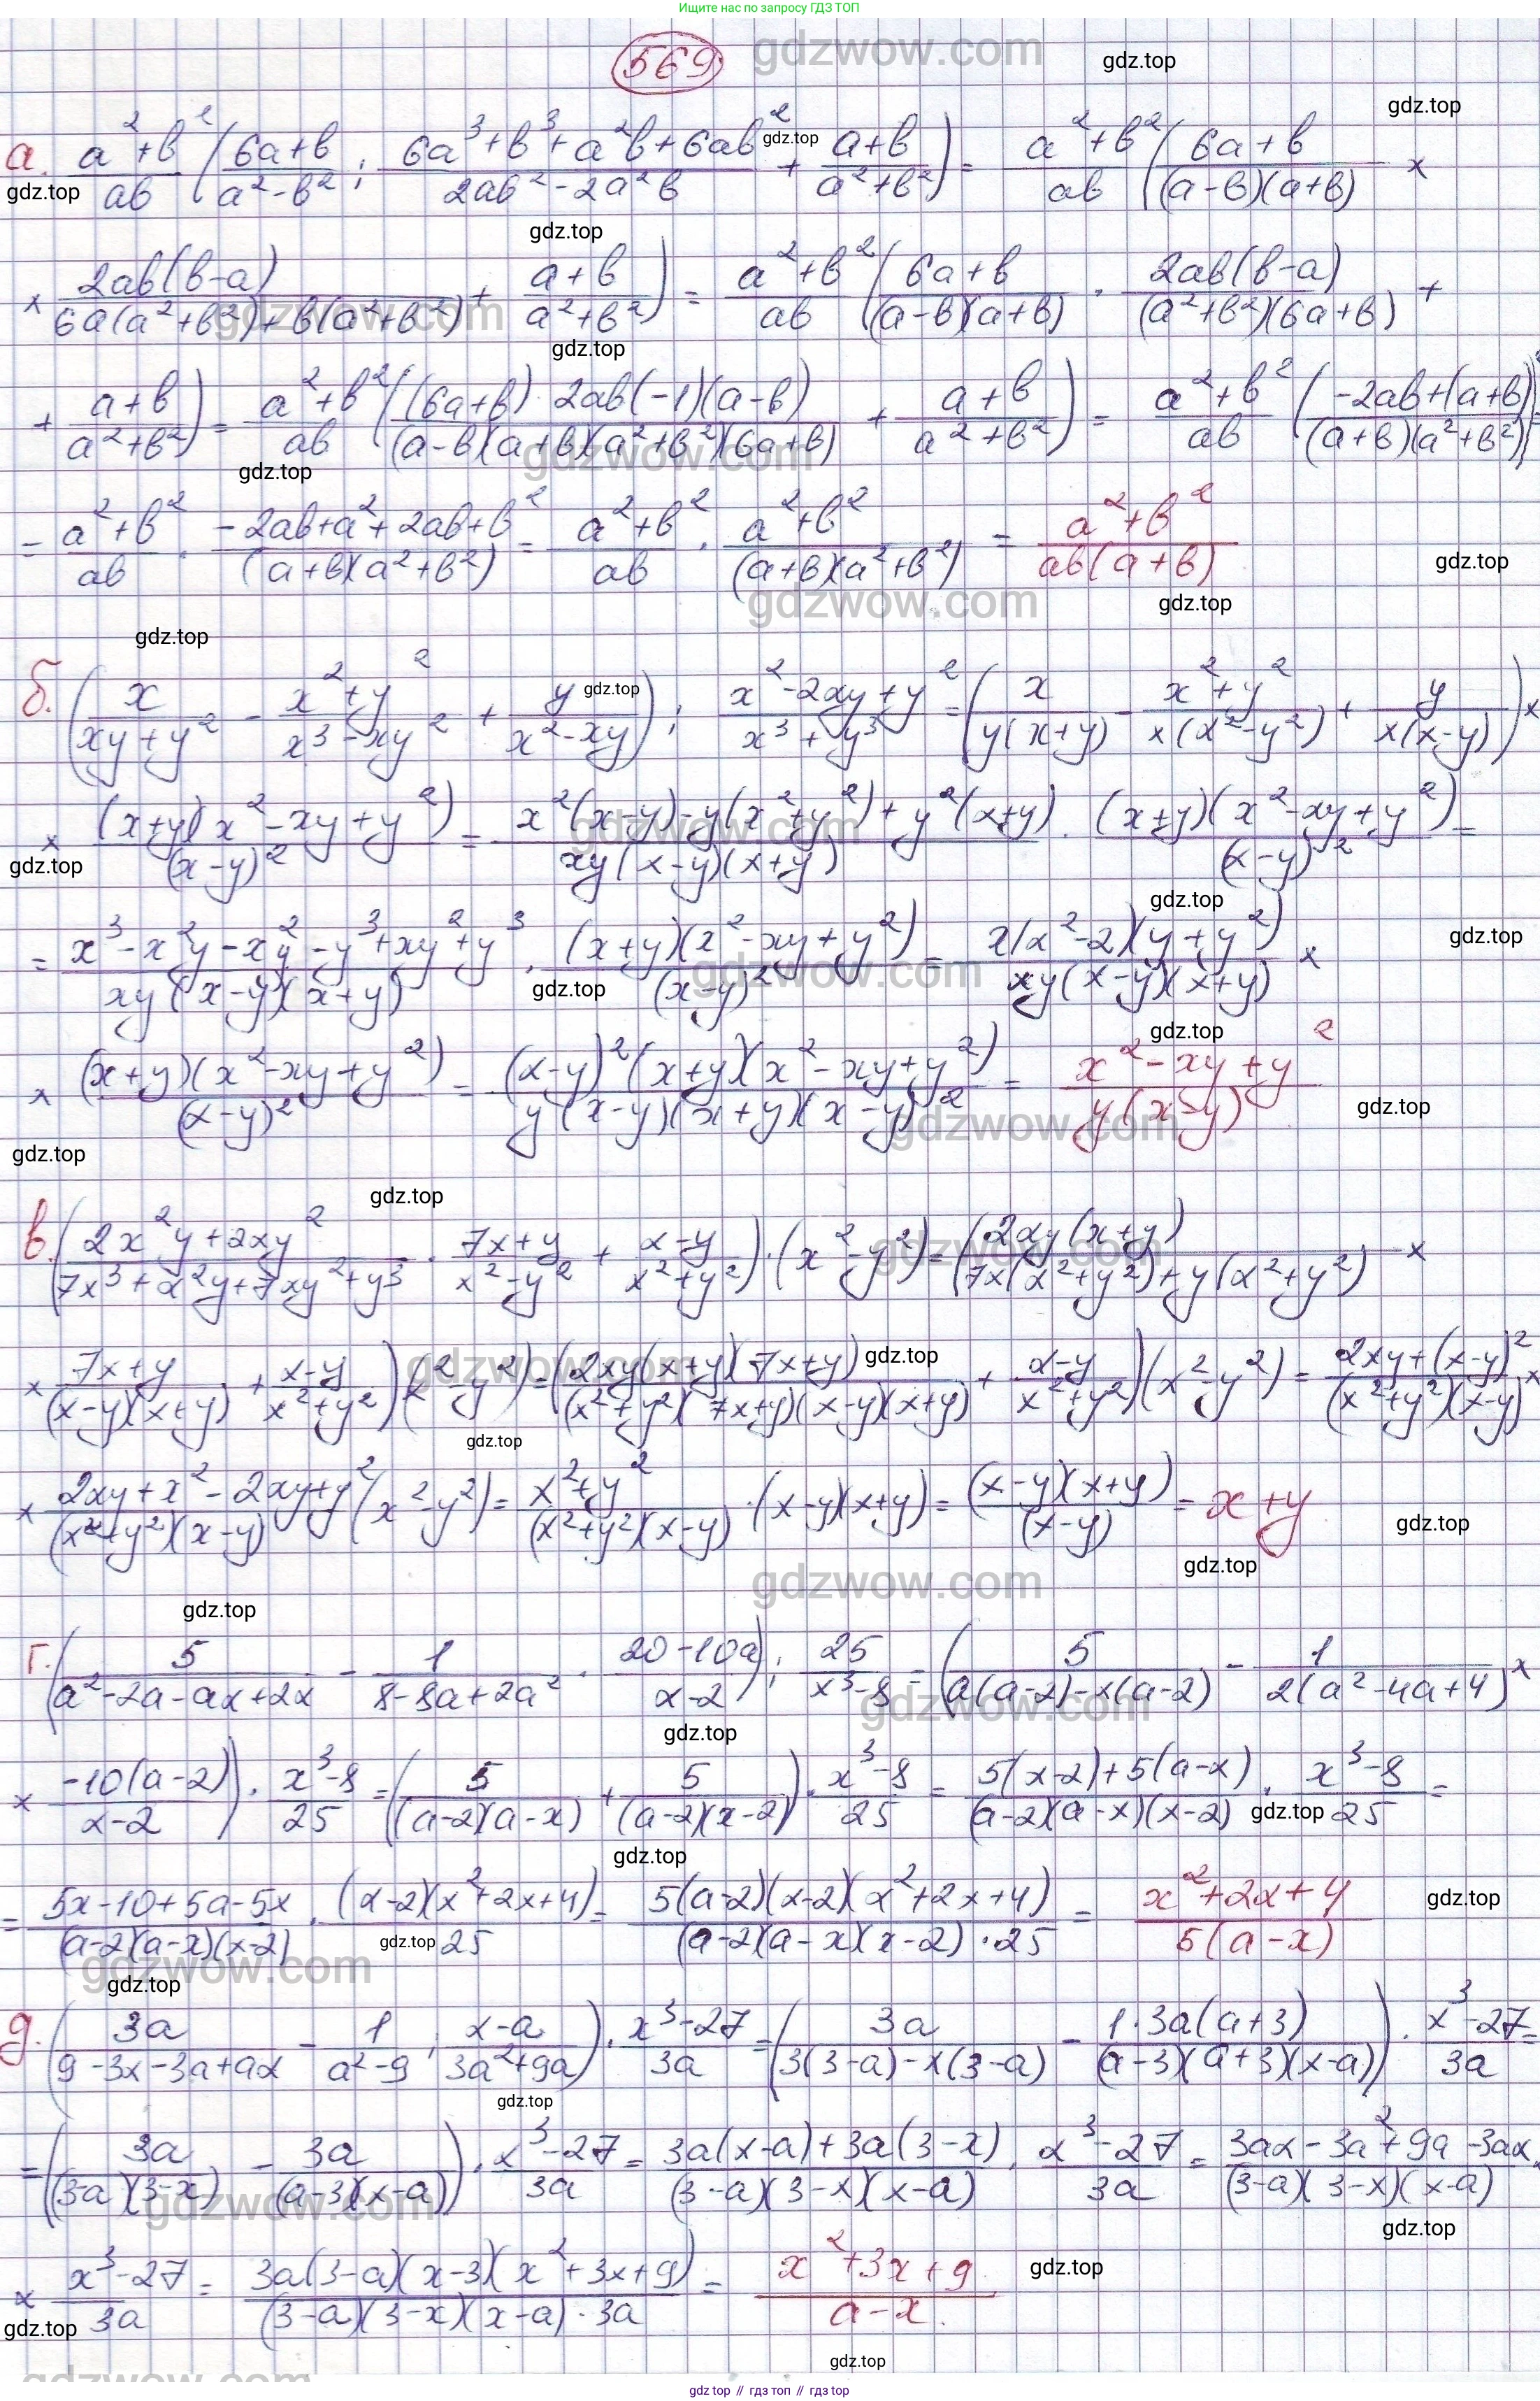 Ищите нас по запросу ГДЗ ТОП
569
а. (a²+b²)/(ab) ((6a+b)/(a²-b²) : (6a³+b³+a²b+6ab²)/(2ab²-2a²b) + (a+b)/(a²+b²)) = (a²+b²)/(ab) ((6a+b)/((a-b)(a+b)) ×
× (2ab(b-a))/(6a(a²+b²)+b(a²+b²)) + (a+b)/(a²+b²)) = (a²+b²)/(ab) ((6a+b)/((a-b)(a+b)) · (2ab(b-a))/((a²+b²)(6a+b)) +
+ (a+b)/(a²+b²)) = (a²+b²)/(ab) (((6a+b) 2ab(-1)(a-b))/((a-b)(a+b)(a²+b²)(6a+b)) + (a+b)/(a²+b²)) = (a²+b²)/(ab) ((-2ab+(a+b)²)/((a+b)(a²+b²))) =
= (a²+b²)/(ab) · (-2ab+a²+2ab+b²)/((a+b)(a²+b²)) = (a²+b²)/(ab) · (a²+b²)/((a+b)(a²+b²)) = (a²+b²)/(ab(a+b))
б. (x/(xy+y²) - (x²+y²)/(x³-xy²) + y/(x²-xy)) : (x²-2xy+y²)/(x³+y³) = (x/(y(x+y)) - (x²+y²)/(x(x²-y²)) + y/(x(x-y))) ×
× ((x+y)(x²-xy+y²))/((x-y)²) = (x²(x-y)-y(x²+y²)+y²(x+y))/(xy(x-y)(x+y)) · ((x+y)(x²-xy+y²))/((x-y)²) =
= (x³-x²y-x²y-y³+xy²+y³)/(xy(x-y)(x+y)) · ((x+y)(x²-xy+y²))/((x-y)²) = (x(x²-2)(y+y²))/(xy(x-y)(x+y)) ×
× ((x+y)(x²-xy+y²))/((x-y)²) = ((x-y)²(x+y)(x²-xy+y²))/(y(x-y)(x+y)(x-y)²) = (x²-xy+y²)/(y(x-y))
в. ((2x²y+2xy²)/(7x³+x²y+7xy²+y³) · (7x+y)/(x²-y²) + (x-y)/(x²+y²)) · (x²-y²) = ((2xy(x+y))/(7x(x²+y²)+y(x²+y²)) ×
× (7x+y)/((x-y)(x+y)) + (x-y)/(x²+y²)) (x²-y²) = ((2xy(x+y)(7x+y))/((x²+y²)(7x+y)(x-y)(x+y)) + (x-y)/(x²+y²)) (x²-y²) = (2xy+(x-y)²)/((x²+y²)(x-y)) ×
× (2xy+x²-2xy+y²)/((x²+y²)(x-y)) (x²-y²) = (x²+y²)/((x²+y²)(x-y)) · (x-y)(x+y) = ((x-y)(x+y))/((x-y)) = x+y
г. (5/(a²-2a-ax+2x) - 1/(8-8a+2a²) · (20-10a)/(x-2)) : 25/(x³-8) = (5/(a(a-2)-x(a-2)) - 1/(2(a²-4a+4)) ×
× (-10(a-2))/(x-2)) · (x³-8)/25 = (5/((a-2)(a-x)) + 5/((a-2)(x-2))) · (x³-8)/25 = (5(x-2)+5(a-x))/((a-2)(a-x)(x-2)) · (x³-8)/25 =
= (5x-10+5a-5x)/((a-2)(a-x)(x-2)) · ((x-2)(x²+2x+4))/25 = (5(a-2)(x-2)(x²+2x+4))/((a-2)(a-x)(x-2)·25) = (x²+2x+4)/(5(a-x))
д. (3a/(9-3x-3a+ax) - 1/(a²-9) : (x-a)/(3a²+9a)) · (x³-27)/(3a) = (3a/(3(3-a)-x(3-a)) - (1·3a(a+3))/((a-3)(a+3)(x-a))) · (x³-27)/(3a) =
= (3a/((3-a)(3-x)) - 3a/((a-3)(x-a))) · (x³-27)/(3a) = (3a(x-a)+3a(3-x))/((3-a)(3-x)(x-a)) · (x³-27)/(3a) = (3ax-3a²+9a-3ax)/((3-a)(3-x)(x-a)) ×
× (x³-27)/(3a) = (3a(3-a)(x-3)(x²+3x+9))/((3-a)(3-x)(x-a)·3a) = (x²+3x+9)/(a-x).
gdz top // гдз топ // гдз top